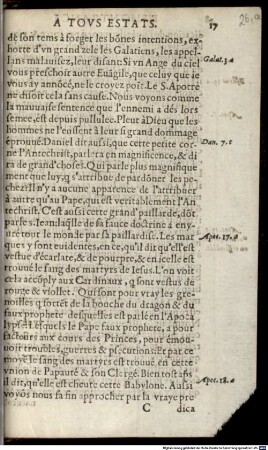 A TOVS ESTATS.
17
de son tems à forger les bõnes intentions, ex-
horte d'vn grand zele les Galatiens, les appel-
lans malauisez, leur disant: Si vn Ange du ciel
Galat. 1.
vous preschoit autre Euãgile, que celuy que ie
vous ay annõcé, ne le croyez poĩt. Le S. Apotre
ne disoit cela sans cause. Nous voyons comme
la mauuaise sentence que l'ennemi a dés lors
semee, est depuis pullulee. Pleut à Dieu que les
hommes ne l'eussent à leur si grand dommage
éprouué. Daniel dit aussi, que cette petite cor-
Dan. 7.
ne l'Antechrist, parlera en magnificence, & di-
ra de grand' choses. Qui parle plus magnifique
ment que luy, q s'attribue de pardõner les pe-
chez? Il n'y a aucune apparence de l'attribuer
à autre qu'au Pape, qui est veritablement l'An
techrist. C'est aussi cette grand' paillarde, dõt
parle S. Jean, laq̃lle de sa fauce doctrine a eny-
uré tout le monde par sa paillardise. Les mar
Apoc. 17.
ques y sont euidentes, en ce, qu'il dit qu'ell'est
vestue d'écarlate, & de pourpre, & en icelle est
trouué le sang des martyrs de Iesus. L'on voit
cela accõply aux Cardinaux, q sont vestus de
rouge & violet. Qui sont pour vray les gre-
noilles q sortẽt de la bouche du dragon & du
faux prophete desquelles est parlé en l'Apoca
lypse? lesquels le Pape faux prophete, a pour
factours aux cours des Princes, pour émou-
uoir troubles, guerres & psecutions. Et par ce
moyẽ le sang des martyrs est trouué en cette v-
nion de Papauté & son Clergé. Bien tost apres
il dit, qu'elle est cheute cette Babylone. Aussi
Apoc. 18.
voyõs nous sa fin approcher par la vraye pre
C
dica